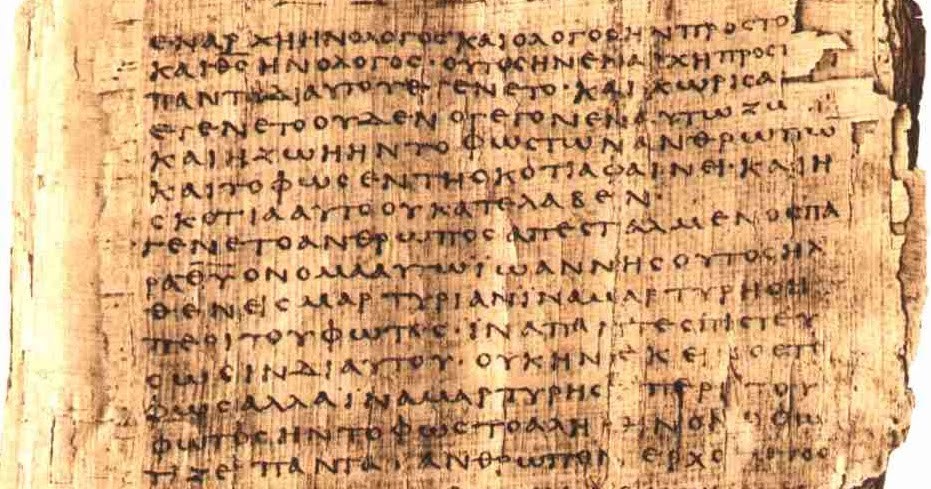 ΕΝΑΡΧΗΗΝΟΛΟΓΟΣΚΑΙΟΛΟΓΟΣΗΝΠΡΟΣΤΟ
ΚΑΙΘ̅Σ̅ΗΝΟΛΟΓΟΣ·ΟΥΤΟΣΗΝΕΝΑΡΧΗΠΡΟΣΤ
ΠΑΝΤΑΔΙΑΥΤΟΥΕΓΕΝΕΤΟ·ΚΑΙΧΩΡΙΣΑ
ΕΓΕΝΕΤΟΟΥΔΕΝΟΓΕΓΟΝΕΝΑΥΤΩΖΩ
ΚΑΙΗΖΩΗΗΝΤΟΦΩΣΤΩΝΑΝΘΡΩΠΩ
ΚΑΙΤΟΦΩΣΕΝΤΗΣΚΟΤΙΑΦΑΙΝΕΙ·ΚΑΙΗ
ΣΚΟΤΙΑΑΥΤΟΟΥΚΑΤΕΛΑΒΕΝ·
ΓΕΝΕΤΟΑΝΘΡΩΠΟΣΑΠΕΣΤΑΛΜΕΝΟΣΠΑ
ΡΑΘ̅Υ̅ΟΝΟΜΑΑΥΤΩΙΩΑΝΝΗΣΟΥΤΟΣΗΛ
ΘΕΝΕΙΣΜΑΡΤΥΡΙΑΝΙΝΑΜΑΡΤΥΡΗΣΗ
ΠΕΡΙΤΟΥΦΩΤΟΣ·ΙΝΑΠΑΝΤΕΣΠΙΣΤΕΥ
ΣΩΣΙΝΔΙΑΥΤΟΥ·ΟΥΚΗΝΕΚΕΙΝΟΣΤΟ
ΦΩΣΑΛΛΑΙΝΑΜΑΡΤΥΡΗΣΗΠΕΡΙΤΟΥ
ΦΩΤΟΣΗΝΤΟΦΩΣΤΟΑΛΗΘΙΝΟΝΟΦΩ
ΤΙΖΕΙΠΑΝΤΑΑΝΘΡΩΠΟΝΕΡΧΟΜΕΝΟ